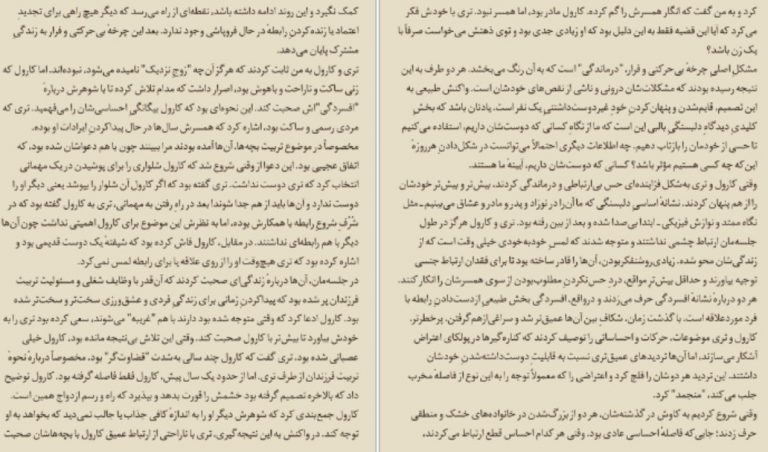 کمک نگیرد و این روند ادامه داشته باشد، نقطه‌ای از راه می‌رسد که دیگر هیچ راهی برای تجدیدِ
اعتماد یا زنده‌کردنِ رابطه در حال فروپاشی وجود ندارد. بعد این چرخهٔ بی‌حرکتی و فرار به زندگیِ
مشترک پایان می‌دهد.
تری و کارول به من ثابت کردند که هرگز آن‌چه "زوج نزدیک" نامیده می‌شود، نبوده‌اند. اما کارول که
زنی ساکت و ناراحت و باهوش بود، اصرار داشت که مدام تلاش کرده تا با شوهرش دربارهٔ
"افسردگی"اش صحبت کند. این نحوه‌ای بود که کارول بیگانگیِ احساسی‌شان را می‌فهمید. تری که
مردی رسمی و ساکت بود، اشاره کرد که همسرش سال‌ها در حال پیداکردنِ ایرادات او بوده.
مخصوصاً در موضوع تربیت بچه‌ها. آن‌ها آمده بودند مرا ببینند چون با هم دعواشان شده بود، که
اتفاق عجیبی بود. این دعوا از وقتی شروع شد که کارول شلواری را برای پوشیدن در یک مهمانی
انتخاب کرد که تری دوست نداشت. تری گفته بود که اگر کارول آن شلوار را بپوشد یعنی دیگر او را
دوست ندارد و آن‌ها باید از هم جدا شوند! بعد در راهِ رفتن به مهمانی، تری به کارول گفته بود که در
شُرُفِ شروعِ رابطه با همکارش بوده، اما به نظرش این موضوع برای کارول اهمیتی نداشت چون آن‌ها
دیگر با هم رابطه‌ای نداشتند. در مقابل، کارول فاش کرده بود که شیفتهٔ یک دوست قدیمی بود و
اشاره کرده بود که تری هیچ‌وقت او را از روی علاقه یا برای رابطه لمس نمی‌کرد.
در جلسه‌مان، آن‌ها دربارهٔ زندگی‌ای صحبت کردند که آن‌قدر با وظایف شغلی و مسئولیت تربیت
فرزندان پر شده بود که پیداکردن زمانی برای زندگیِ فردی و عشق‌ورزی سخت‌تر و سخت‌تر شده
بود. کارول ادعا کرد که وقتی متوجه شده بود دارند با هم "غریبه" می‌شوند، سعی کرده بود تری را به
خودش بیاورد تا بیش‌تر با کارول صحبت کند. وقتی این تلاش بی‌نتیجه مانده بود، کارول خیلی
عصبانی شده بود. تری گفت که کارول چند سالی به‌شدت "قضاوت‌گر" بود، مخصوصاً دربارهٔ نحوهٔ
تربیت فرزندان از طرف تری. اما از حدود یک سال پیش، کارول فقط فاصله گرفته بود. کارول توضیح
داد که بالاخره تصمیم گرفته بود خشمش را قورت بدهد و بپذیرد که راه و رسم ازدواج همین است.
کارول جمع‌بندی کرد که شوهرش دیگر او را به اندازهٔ کافی جذاب یا جالب نمی‌دید که بخواهد به او
توجه کند. در واکنش به این نتیجه‌گیری، تری با ناراحتی از ارتباط عمیق کارول با بچه‌هاشان صحبت
کرد و به من گفت که انگار همسرش را گم کرده. کارول مادر بود، اما همسر نبود. تری با خودش فکر
می‌کرد که آیا این قضیه فقط به این دلیل بود که او زیادی جدی بود و توی ذهنش می‌خواست صرفاً با
یک زن باشد؟
مشکل اصلیِ چرخهٔ بی‌حرکتی و فرار، "درماندگی" است که به آن رنگ می‌بخشد. هر دو طرف به این
نتیجه رسیده بودند که مشکلات‌شان درونی و ناشی از نقص‌های خودشان است. واکنش طبیعی به
این تصمیم، قایم‌شدن و پنهان‌کردنِ خودِ غیردوست‌داشتنیِ یک نفر است. یادتان باشد که بخش
کلیدیِ دیدگاهِ دلبستگیِ بالبی این است که ما از نگاهِ کسانی که دوست‌شان داریم، استفاده می‌کنیم
تا حسی از خودمان را بازتاب دهیم. چه اطلاعات دیگری احتمالاً می‌توانست در شکل‌دادنِ هرروزهٔ
این که چه کسی هستیم مؤثر باشد؟ کسانی که دوست‌شان داریم، آینهٔ ما هستند.
وقتی کارول و تری به‌شکل فزاینده‌ای حس بی‌ارتباطی و درماندگی کردند، بیش‌تر و بیش‌تر خودشان
را از هم پنهان کردند. نشانهٔ اساسی دلبستگی که ما آن‌را در نوزاد و پدر و مادر و عشاق می‌بینیم ـ مثل
نگاه ممتد و نوازش فیزیکی ـ ابتدا بی‌صدا شده و بعد از بین رفته بود. تری و کارول هرگز در طول
جلسه‌مان ارتباط چشمی نداشتند و متوجه شدند که لمسِ خودبه‌خودی خیلی وقت است که از
زندگی‌شان محو شده. زیادی‌روشنفکربودن، آن‌ها را قادر ساخته بود تا برای فقدان ارتباط جنسی
توجیه بیاورند و حداقل بیش‌تر مواقع، دردِ حس‌نکردنِ مطلوب‌بودن از سوی همسرشان را انکار کنند.
هر دو دربارهٔ نشانهٔ افسردگی حرف می‌زدند و درواقع، افسردگی بخش طبیعیِ ازدست‌دادنِ رابطه با
فرد موردعلاقه است. با گذشت زمان، شکافِ بین آن‌ها عمیق‌تر شد و سراغ‌ازهم‌گرفتن، پرخطرتر.
کارول و تری موضوعات، حرکات و احساساتی را توصیف کردند که کناره‌گیرها در پولکای اعتراض
آشکار می‌سازند. اما آن‌ها تردیدهای عمیق‌تری نسبت به قابلیتِ دوست‌داشته‌شدنِ خودشان
داشتند. این تردید هر دوشان را فلج کرد و اعتراضی را که معمولاً توجه را به این نوع از فاصلهٔ مخرب
جلب می‌کند، "منجمد" کرد.
وقتی شروع کردیم به کاوش در گذشته‌شان، هر دو از بزرگ‌شدن در خانواده‌های خشک و منطقی
حرف زدند؛ جایی‌که فاصلهٔ احساسی عادی بود. وقتی هر کدام احساس قطع ارتباط می‌کردند،